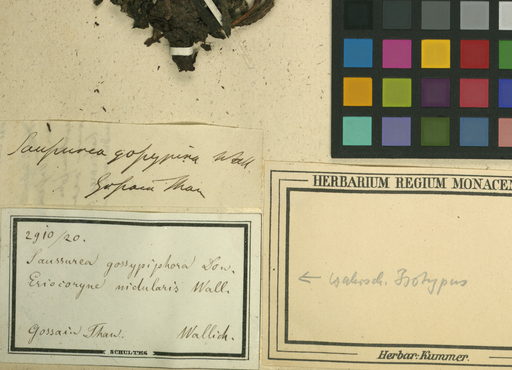 Saussurea gossypina Wall
Gossain Than
2910/20.
Saussurea gossypiphora Don.
Eriocoryne nidularis Wall.
Gossain Than. Wallich.
SCHULTES
HERBARIUM REGIUM MONACEN
← wahrsch. Isotypus
Herbar: Kummer.